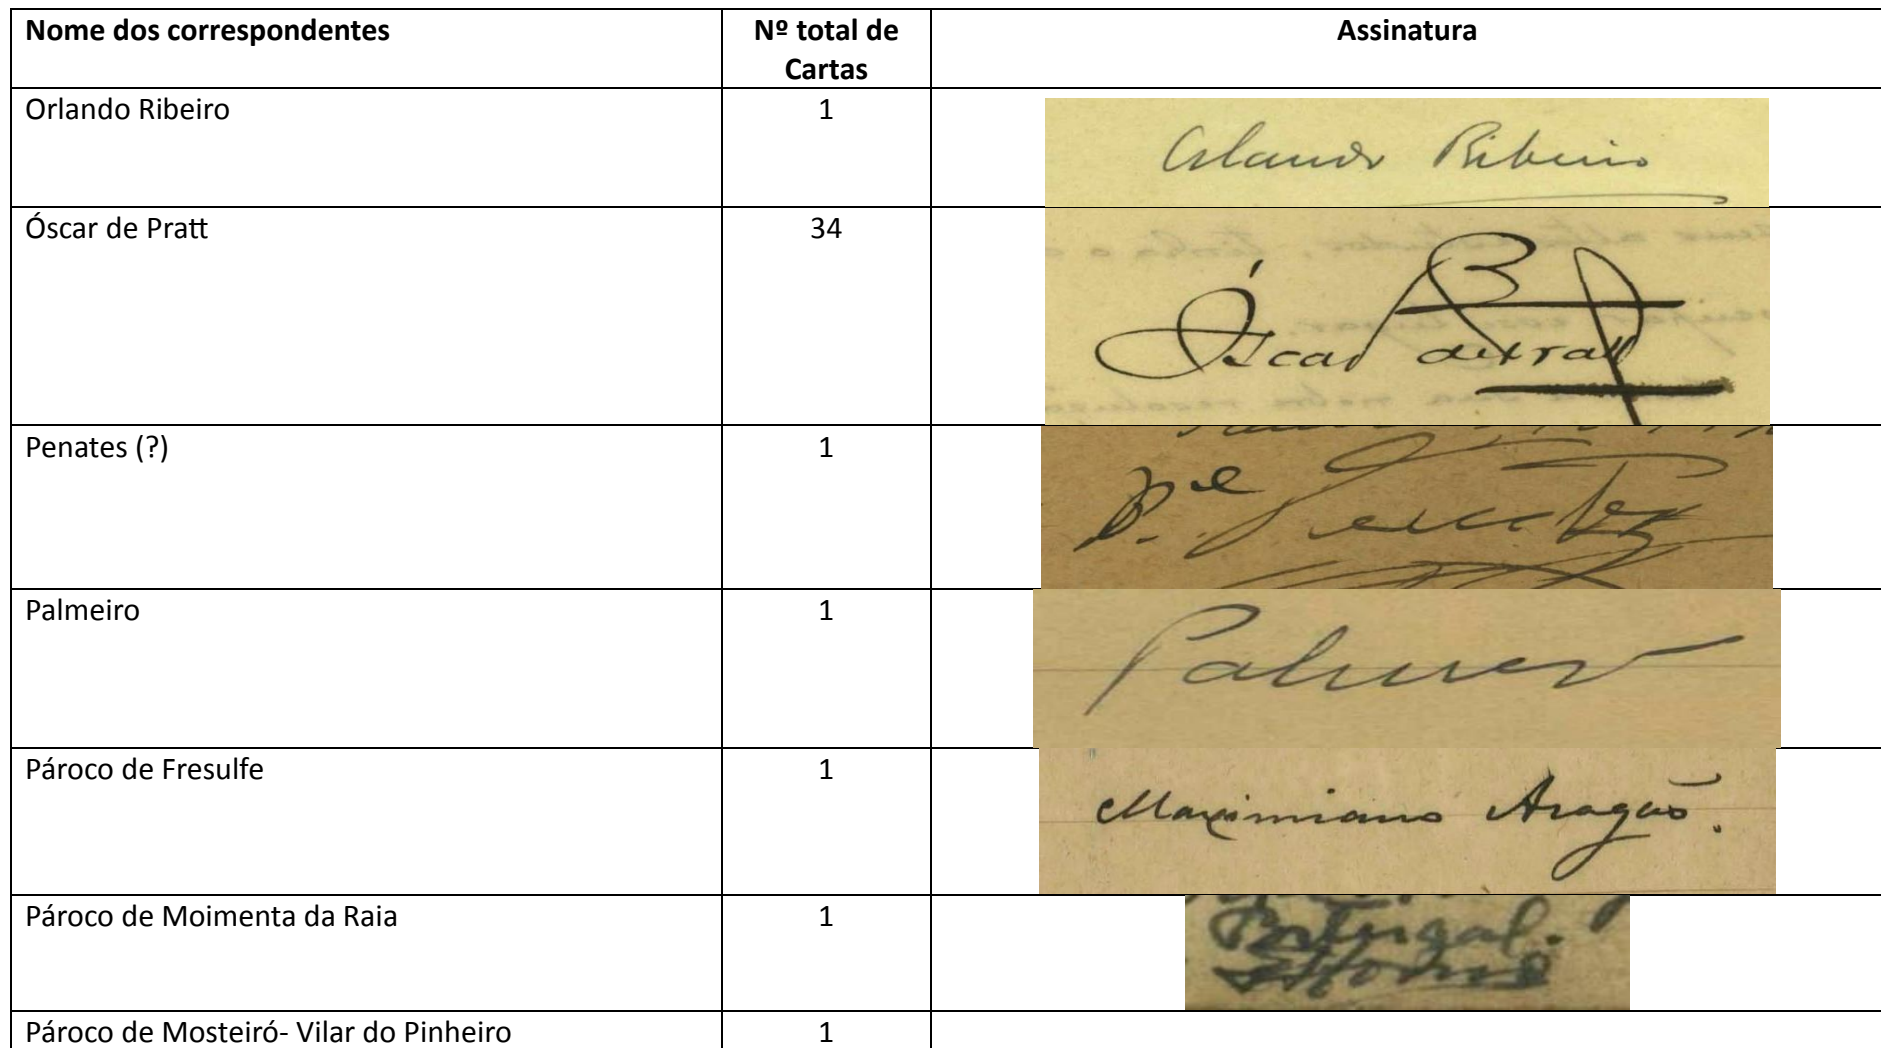 Nome dos correspondentes
Nº total de Cartas
Assinatura
Orlando Ribeiro
1
Orlando Ribeiro
Óscar de Pratt
34
Óscar de Pratt
Penates (?)
1
Palmeiro
1
Palmeiro
Pároco de Fresulfe
1
Maximiano Aragão.
Pároco de Moimenta da Raia
1
Portugal.
Pároco de Mosteiró- Vilar do Pinheiro
1